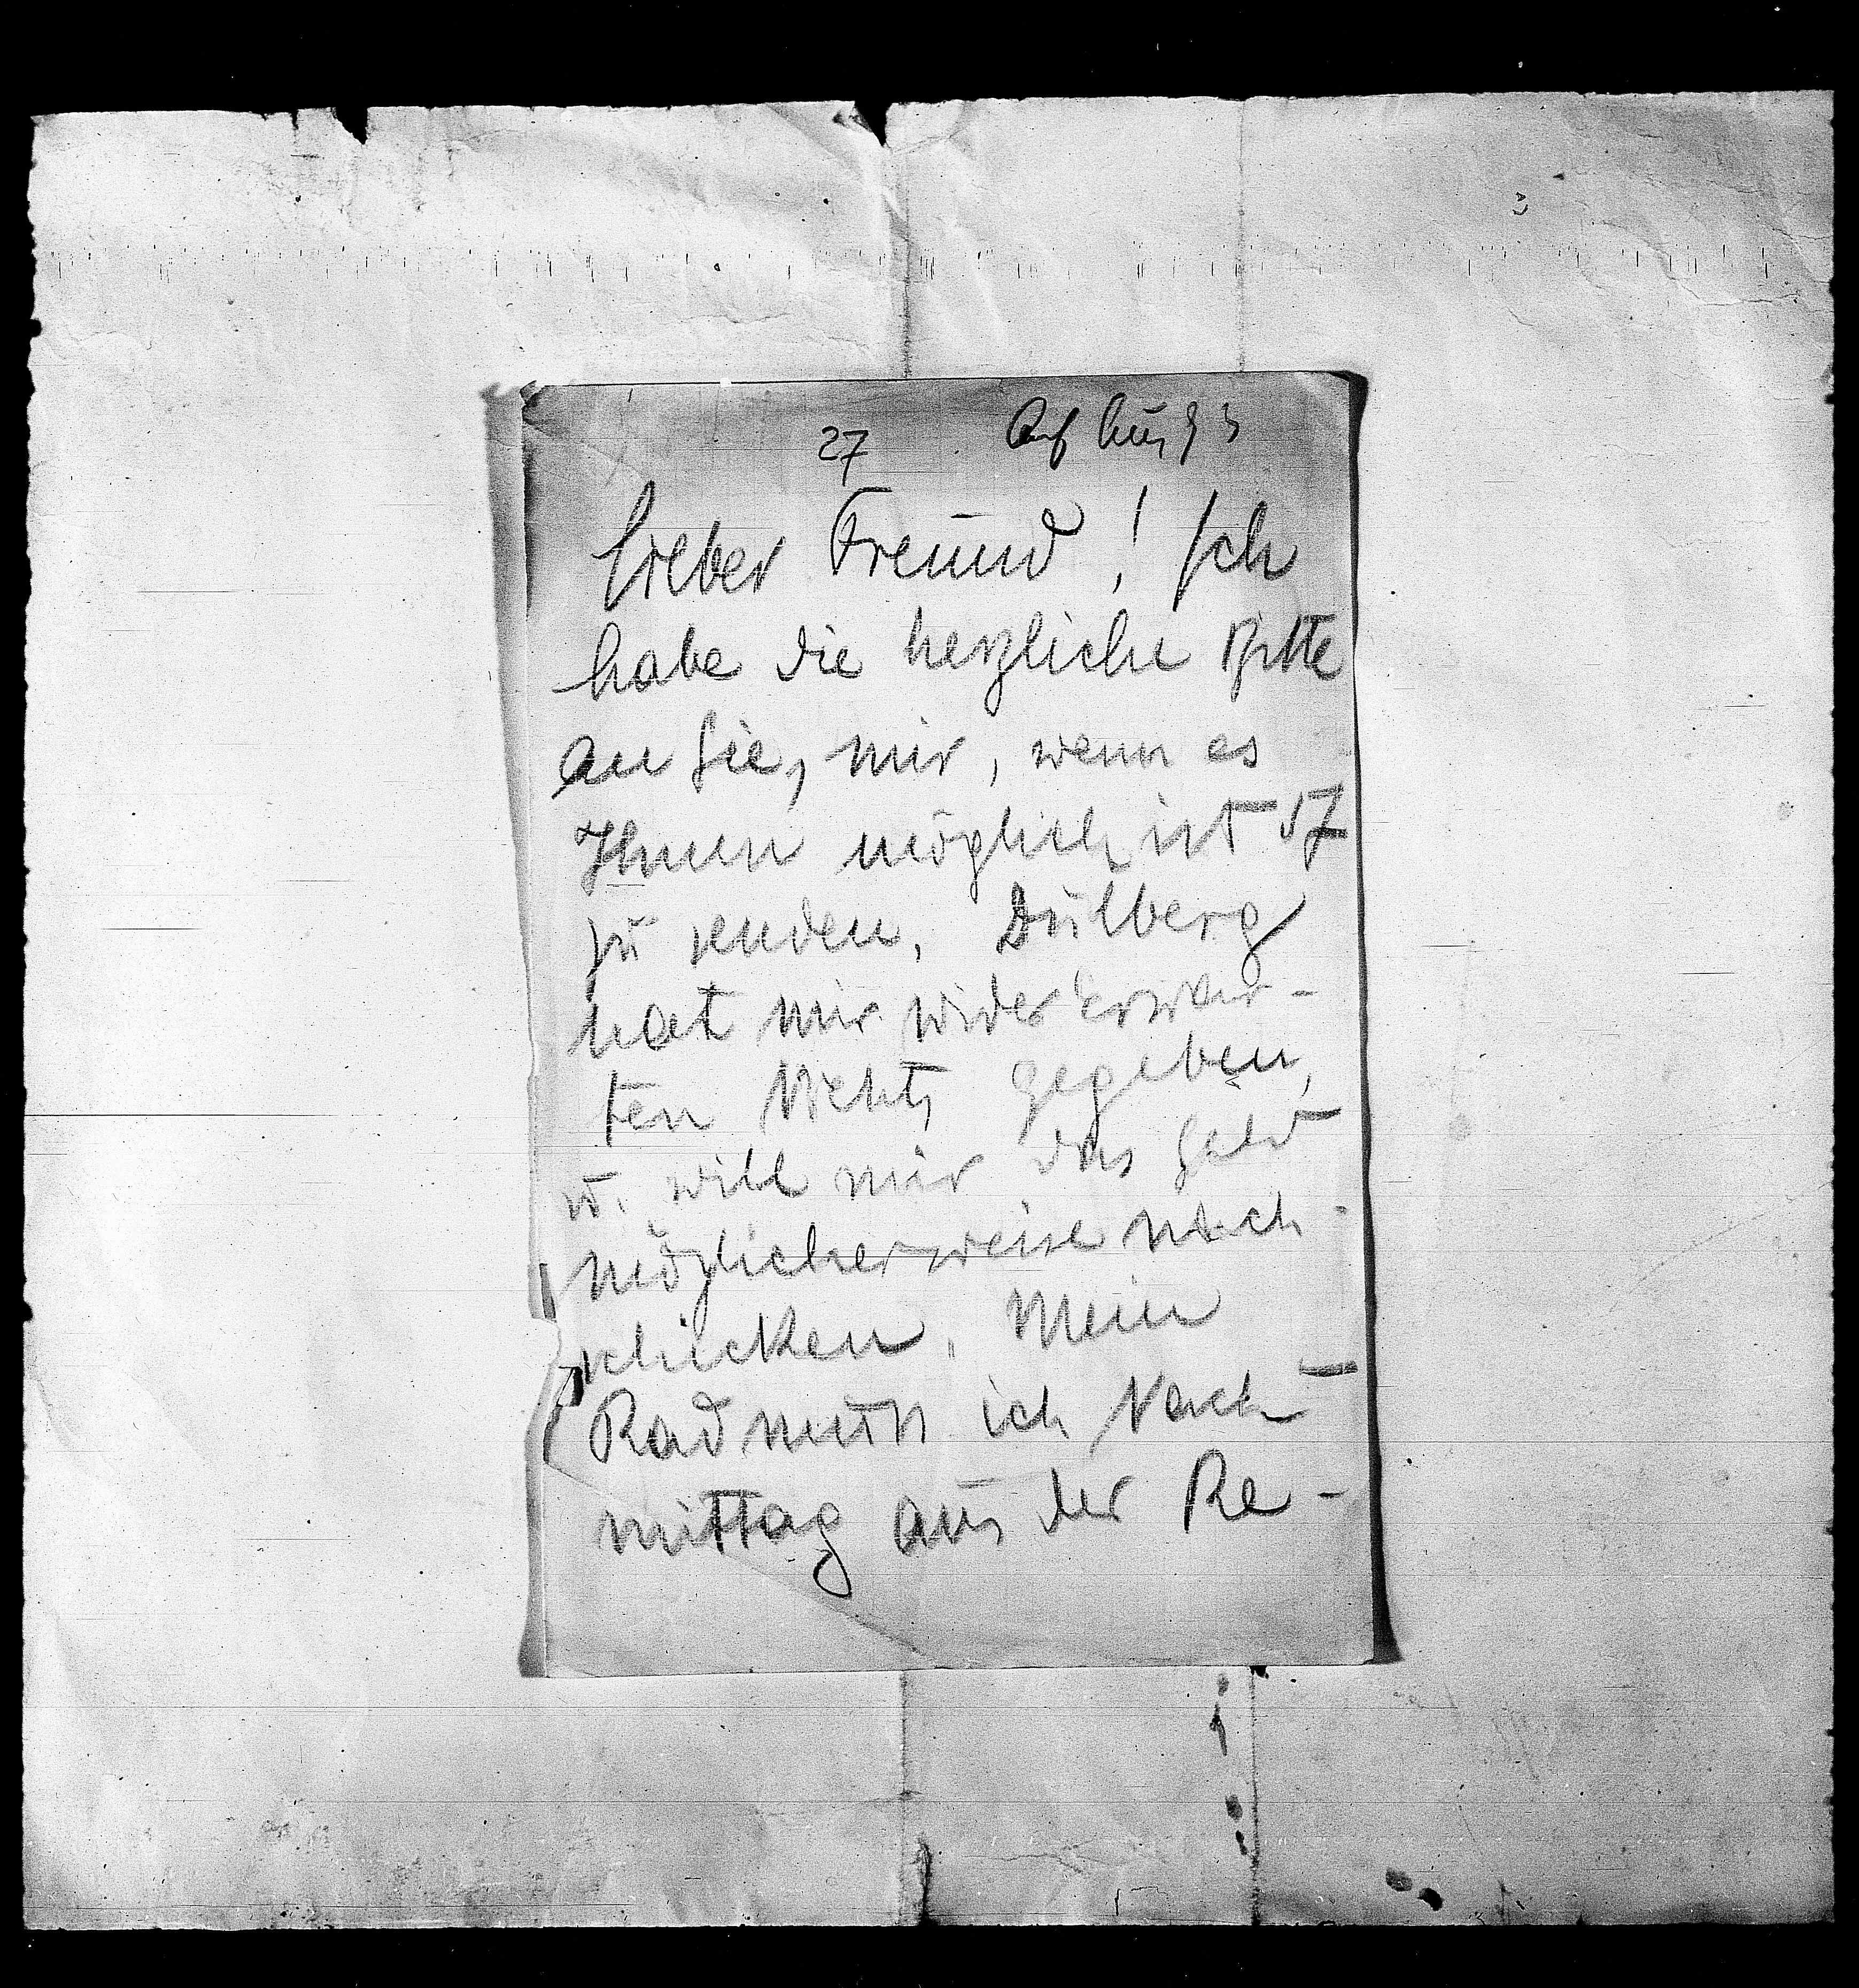 27
Lieber Freund! Ich
habe die herzliche Bitte
an Sie, mir, wenn es
Ihnen möglich ist 57
zu senden, Dülberg
hat mir wider Erwar-
ten Nichts gegeben,
u. will mir das Geld
möglicherweise nach
schicken. Mein
Rad muss ich Nach-
mittag aus der Re-